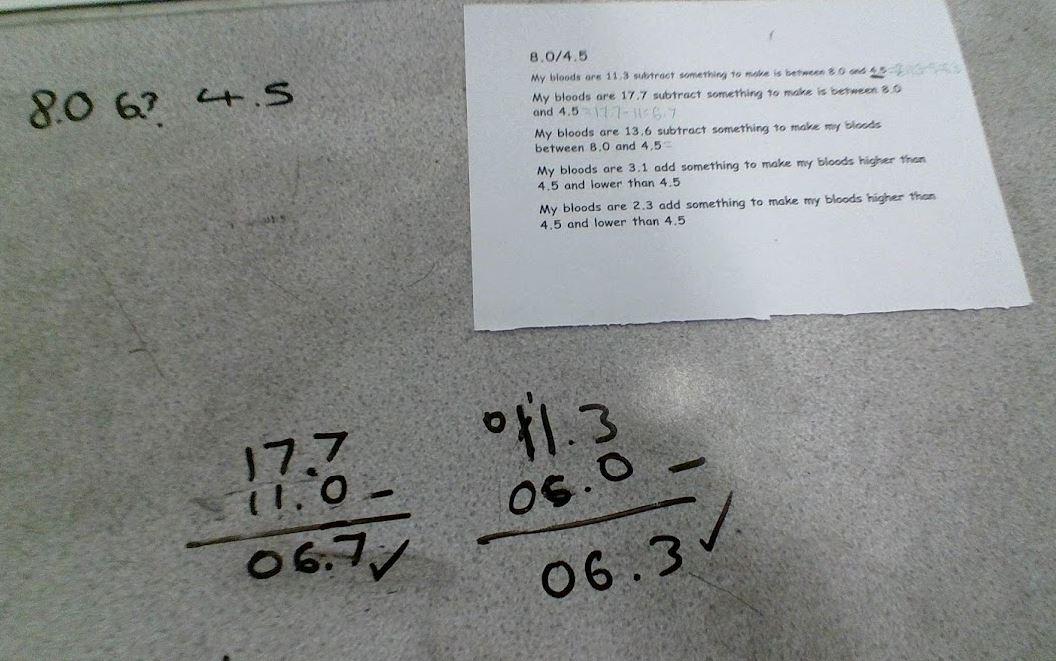 8.0 6? 4.5
8.0/4.5
My bloods are 11.3 subtract something to make is between 8.0 and 4.5
My bloods are 17.7 subtract something to make is between 8.0
and 4.5 =17.7-11=6.7
My bloods are 13.6 subtract something to make my bloods
between 8.0 and 4.5=
My bloods are 3.1 add something to make my bloods higher than
4.5 and lower than 4.5
My bloods are 2.3 add something to make my bloods higher than
4.5 and lower than 4.5
17.7
11.0 -
06.7 ✓
011.3
05.0 -
06.3 ✓